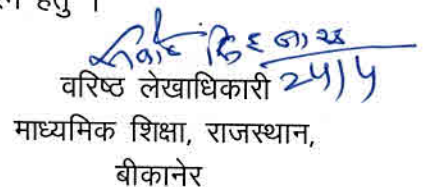 हेतु ।
24/4
वरिष्ठ लेखाधिकारी
माध्यमिक शिक्षा, राजस्थान,
बीकानेर